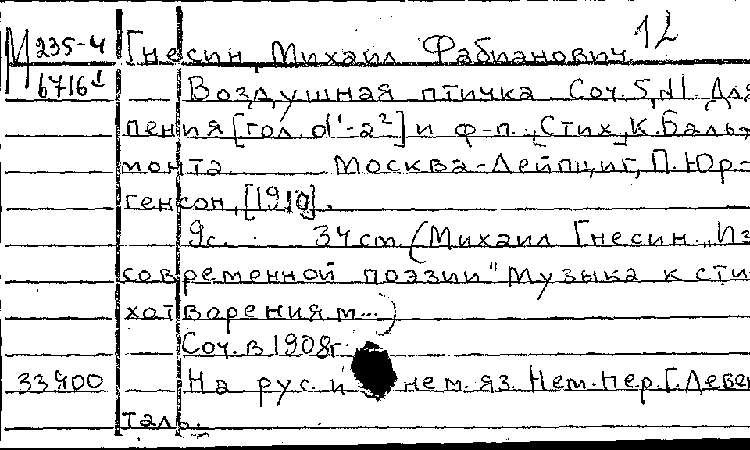 М 235-4 Гнесин, Михаил Фабианович 12
6716¹ Воздушная птичка Соч. 5, №1. Для
пения [гол. d¹-a²] и ф-п. [Стих.] К. Баль-
монта. Москва-Лейпциг, П. Юр-
генсон, [1910].
9с. 34 cm. (Михаил Гнесин. „Из
современной поэзии" Музыка к сти-
хотворениям...)
Соч. в 1908г.
33400 На рус. и нем. яз. Нем. пер. Г. Левен-
таль.